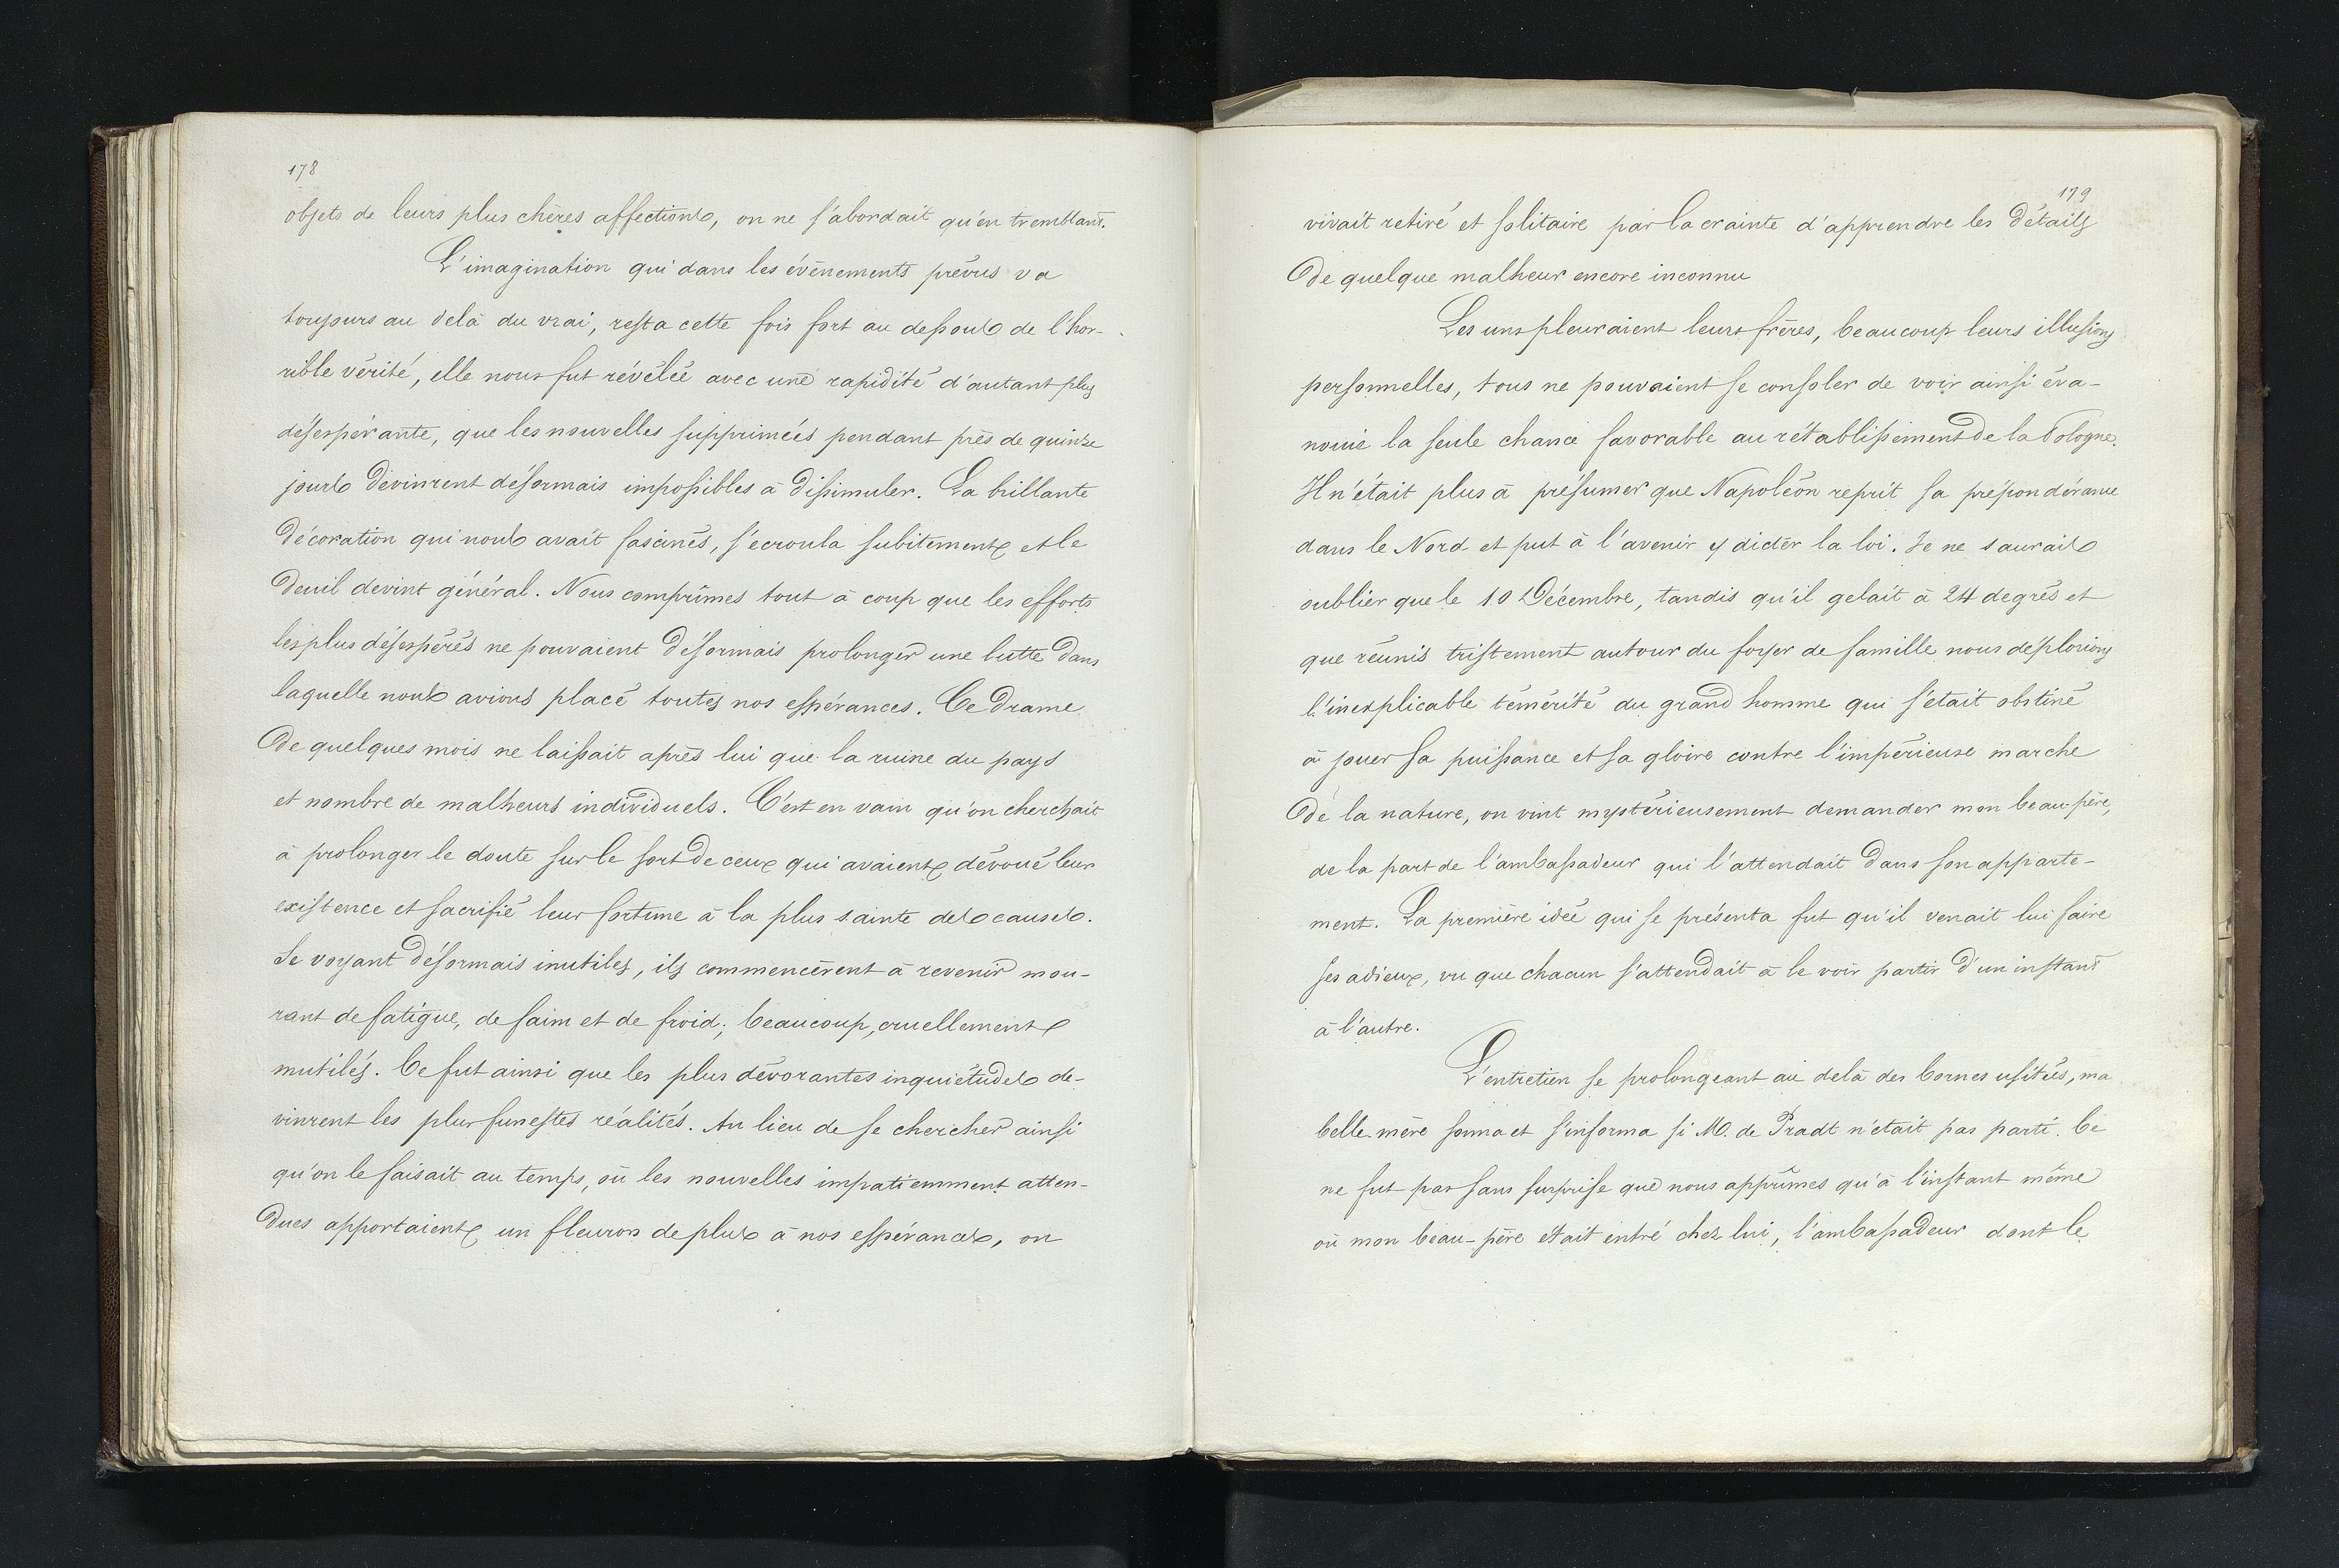 178
objets de leurs plus chères affections, on ne s'abordait qu'en tremblant.
L'imagination qui dans les événements prévus va
toujours au delà du vrai, resta cette fois fort au dessous de l'hor-
rible vérité, elle nous fut révélée avec une rapidité d'autant plus
désespérante, que les nouvelles supprimées pendant près de quinze
jours devinrent désormais impossibles à dissimuler. La brillante
décoration qui nous avait fascinés, s'écroula subitement et le
deuil devint général. Nous comprîmes tout à coup que les efforts
les plus désespérés ne pouvaient désormais prolonger une lutte dans
laquelle nous avions placé toutes nos espérances. Ce drame
de quelques mois ne laissait après lui que la ruine du pays
et nombre de malheurs individuels. C'est en vain qu'on cherchait
à prolonger le doute sur le sort de ceux qui avaient dévoué leur
existence et sacrifié leur fortune à la plus sainte des causes.
Se voyant désormais inutiles, ils commencèrent à revenir mou-
rant de fatigue, de faim et de froid; beaucoup, cruellement
mutilés. Ce fut ainsi que les plus dévorantes inquiétudes de-
vinrent les plus funestes réalités. Au lieu de se chercher ainsi
qu'on le faisait au temps, où les nouvelles impatiemment atten-
dues apportaient un fleuron de plus à nos espérances, on
179
vivait retiré et solitaire par la crainte d'apprendre les détails
de quelque malheur encore inconnu
Les uns pleuraient leurs frères, beaucoup leurs illusions
personnelles, tous ne pouvaient se consoler de voir ainsi éva-
nouie la seule chance favorable au rétablissement de la Pologne.
Il n'était plus à présumer que Napoléon reprit sa prépondérance
dans le Nord et put à l'avenir y dicter la loi. Je ne saurais
oublier que le 10 Décembre, tandis qu'il gelait à 24 degrés et
que réunis tristement autour du foyer de famille nous déplorions
l'inexplicable témérité du grand homme qui s'était obstiné
à jouer sa puissance et sa gloire contre l'impérieuse marche
de la nature, on vint mystérieusement demander mon beau-père,
de la part de l'ambassadeur qui l'attendait dans son apparte-
ment. La première idée qui se présenta fut qu'il venait lui faire
ses adieux, vu que chacun s'attendait à le voir partir d'un instant
à l'autre.
L'entretien se prolongeant au delà des bornes usitées, ma
belle-mère sonna et s'informa si M. de Pradt n'était pas parti. Ce
ne fut pas sans surprise que nous apprîmes qu'à l'instant même
où mon beau-père était entré chez lui, l'ambassadeur dont le